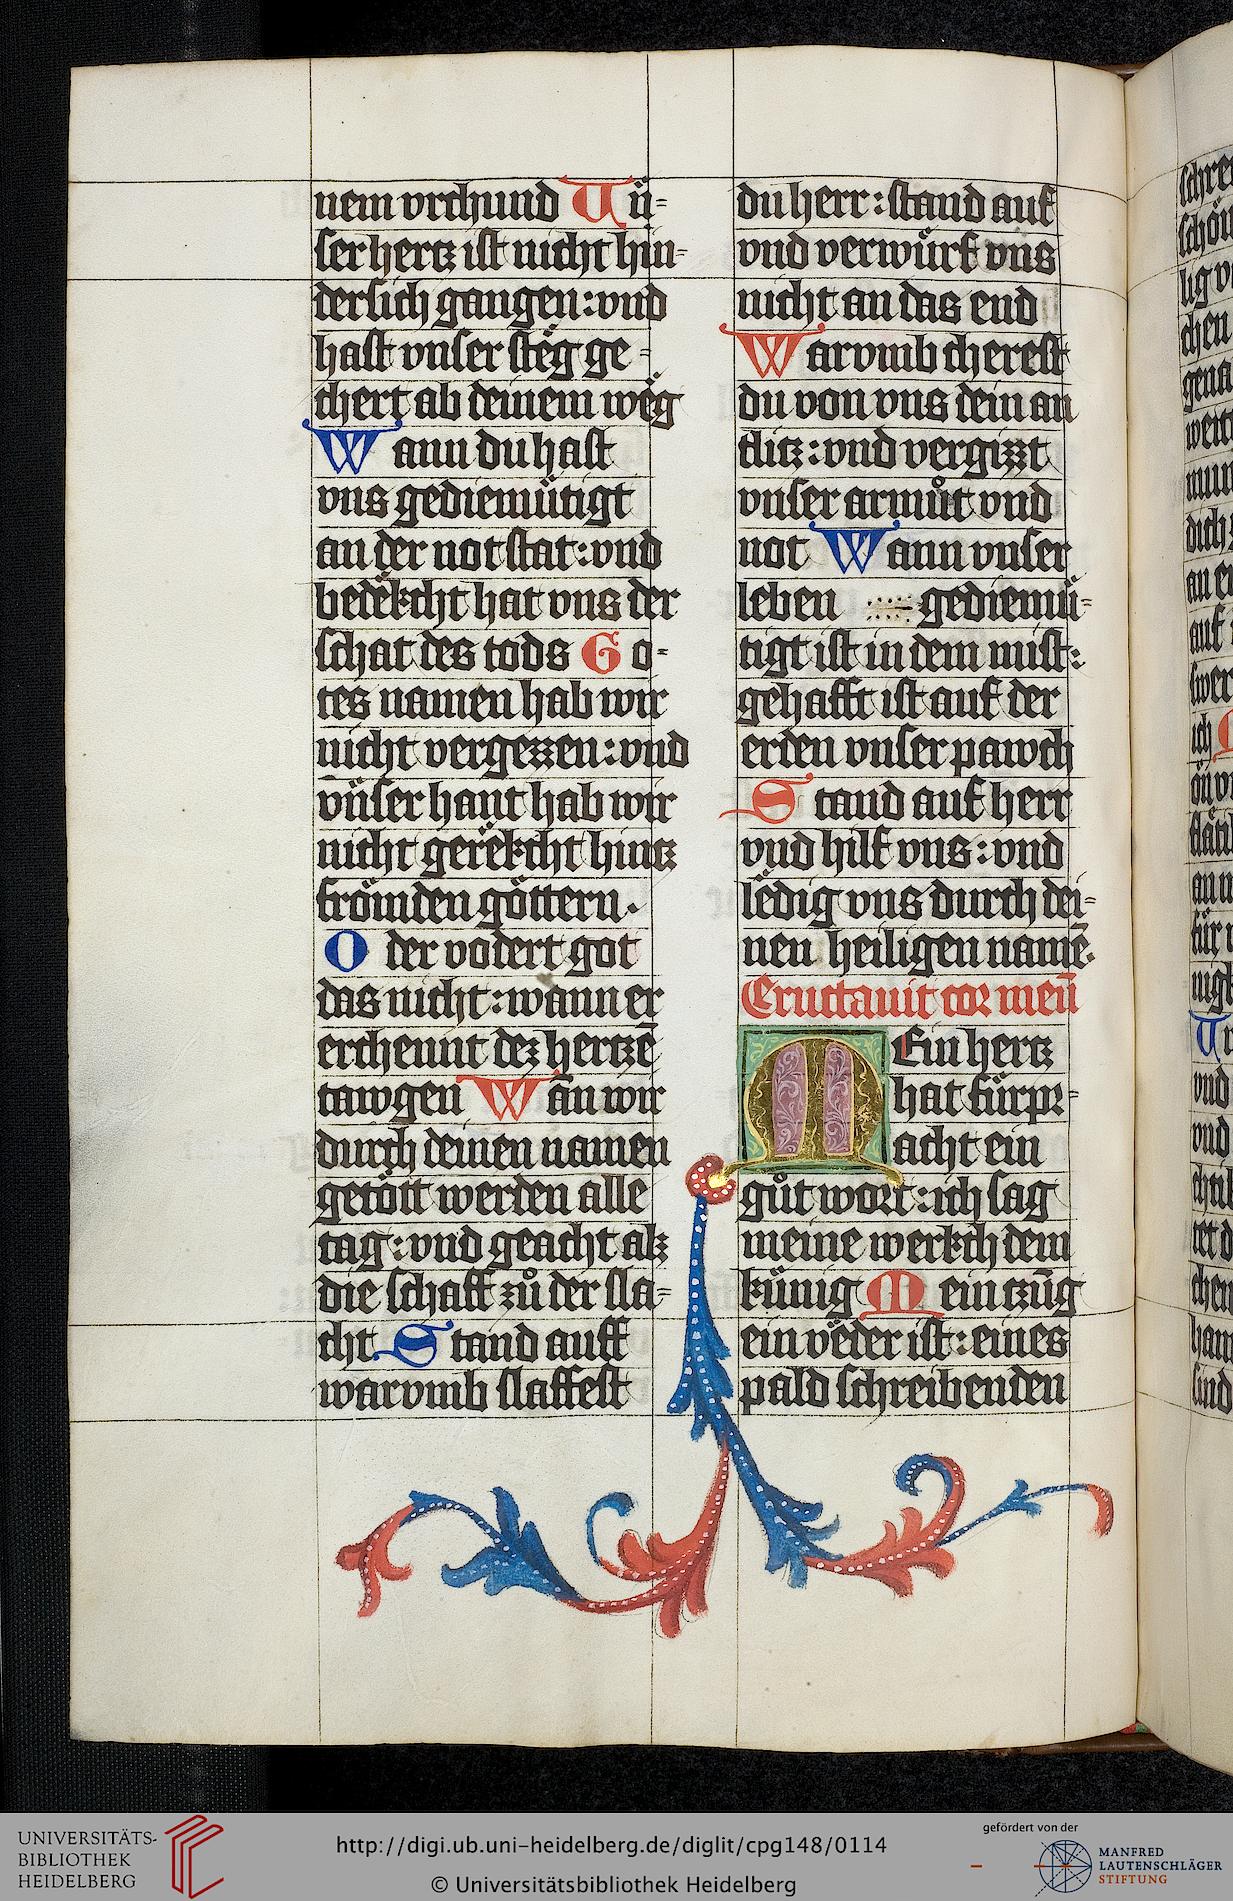 nem vrchund Vü-
ser hertz ist nicht hin-
dersich gangen: vnd
hast vnser stëg ge-
chert ab deinem wëg
Wann du hast
vns gediemütigt
an der not stat: vnd
bedëkcht hat vns der
schat des tods Go-
tes namen hab wir
nicht vergezzen: vnd
vnser hant hab wir
nicht gerëkcht hintz
frömden göttern.
O der vodert got
das nicht: wann er
erchennt dez hertzē
tawgen Wañ wir
durch deinen namen
getött werden alle
tag: vnd geacht alz
die schaff zů der sla-
cht Stand auff
warvmb slaffest
du herr: stand auf
vnd verwürf vns
nicht an das end
Warvmb cherest
du von vns dein an
tlitz: vnd vergizzt
vnser armůt vnd
not Wann vnser
leben gediemü-
tigt ist in dem mist:
gehafft ist auf der
erden vnser pawch
Stand auf herr
vnd hilf vns: vnd
lëdig vns durch dei-
nen heiligen namē.
Eructauit cor meū
MEin hertz
hat fürpr-
acht ein
gůt wort: ich sag
meine werkch dem
künig Mein czūg
ein vëder ist: eines
pald schreibenden
UNIVERSITÄTS-
BIBLIOTHEK
HEIDELBERG
http://digi.ub.uni-heidelberg.de/diglit/cpg148/0114
© Universitätsbibliothek Heidelberg
gefördert von der
MANFRED
LAUTENSCHLÄGER
STIFTUNG